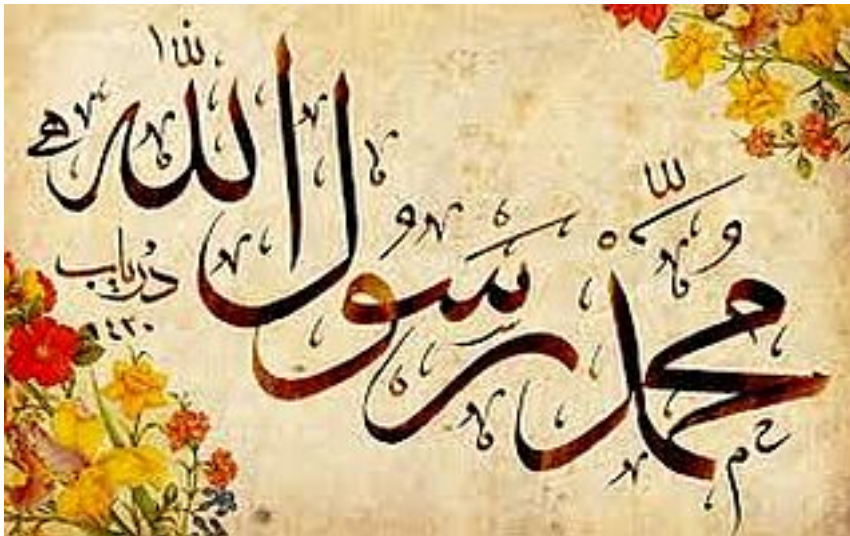 محمد رسول الله
درياب
١٤٣٠